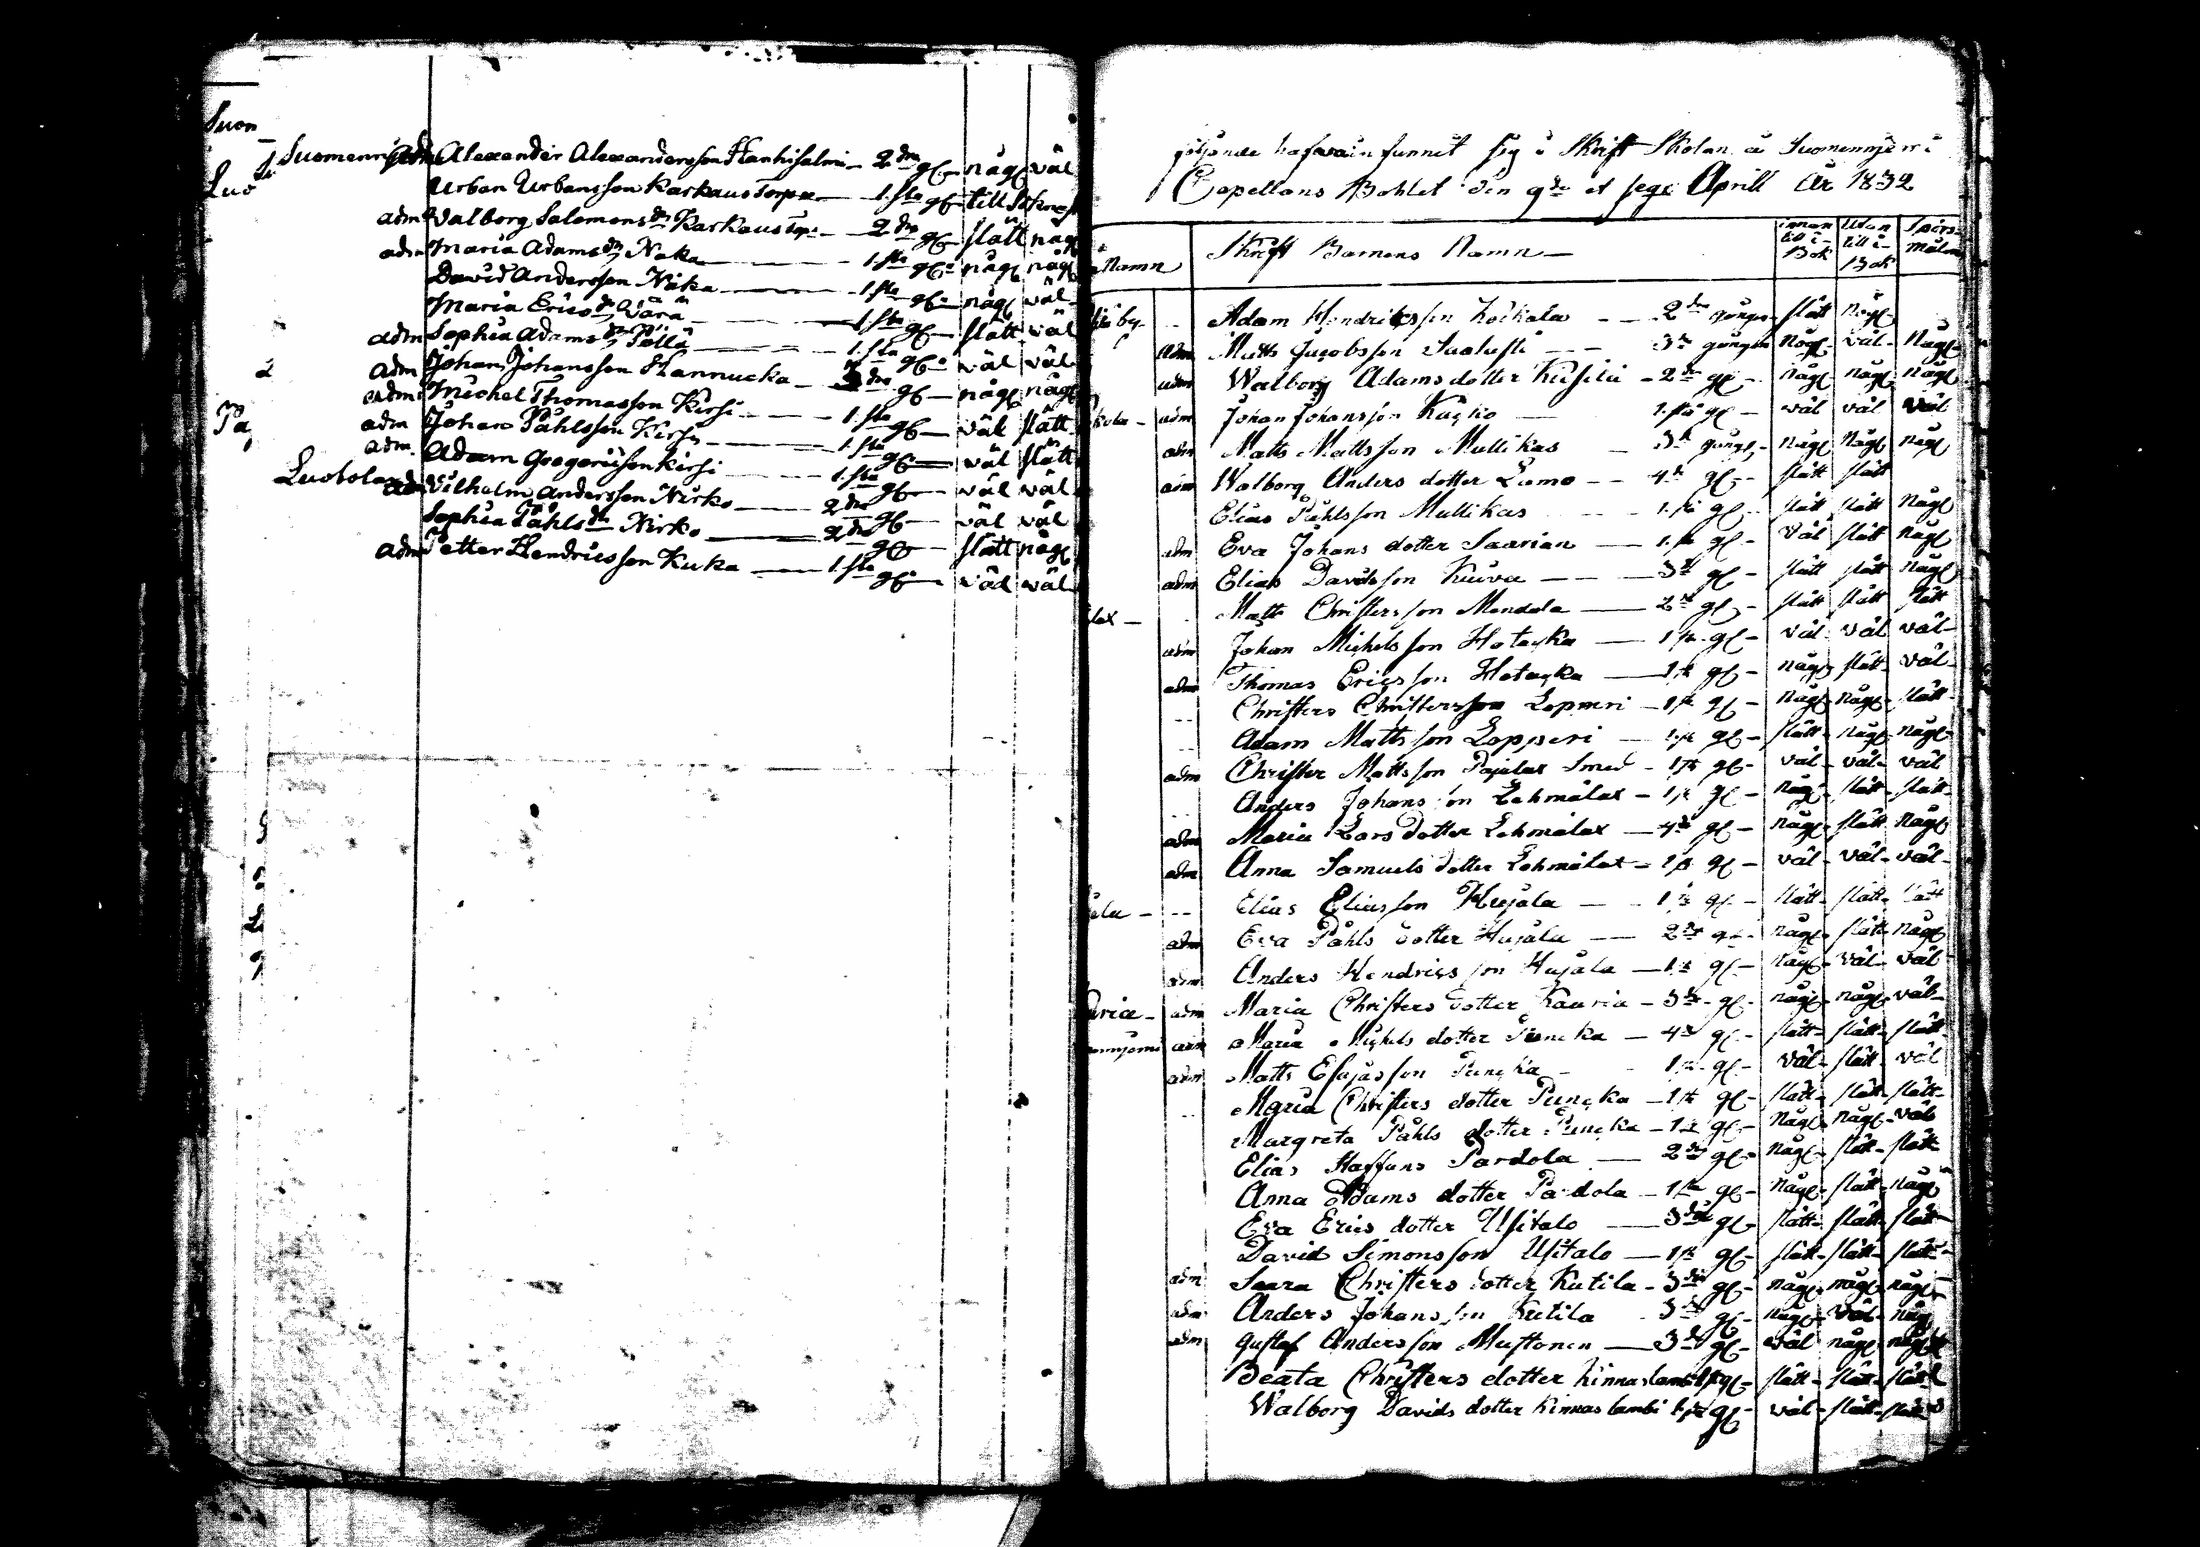 Suon
Luo
2
Pa,
Suomenni adm Alexander Alexandersson Hanhisalmi - 2dra gg - någl väl
Urban Urbansson Karhaus Torpa - 1.sta gg - till
adm Valborg Salomons dr Karhaus Torp - 2dra gg - slätt någl
adm Maria Adams dr Naka - 1.sta gg - någl någl
David Andersson Naka - 1.sta gg - någl väl
Maria Erics dr Värä - 1.sta gg - slätt väl
adm Sophia Adams dr Pöllä - 1.sta gg - väl väl
adm Johan Johansson Hannucka - gg - någl någl
adm Michel Thomasson Kirsi - 1.sta gg - väl slätt
adm Johan Påhlsson Kirsi - 1.sta gg - väl slätt
adm Adam Gregerisson Kirsi - 1.sta gg - väl väl
Luotola adm Vilhelm Andersson Nirko - 2dra gg - väl väl
Sophia Påhls dr Nirko - 2dra gg - slätt någl
adm Petter Hendricsson Kuka - 1.sta gg - väl väl
funnit sig i Skrift Skolan å Suomenniemi
Capellans Bohlet den 9de et seqv Aprill År 1832
Namn Skrift Barnens Namn - innan till i Bok Utan till i Bok Spörsmålen
by - Adam Hendricsson Koikala - 2dra gången slätt någl
adm Matts Jacobsson - 3de gången någl väl någl
adm Walborg Adamsdotter - 2dra gg - någl någl någl
kola - adm Johan Johansson - 1.sta gg - väl väl väl
adm Matts Mattsson Mullikas - 3de gång - någl någl någl
adm Walborg Anders dotter Lumo - 4de gg - slätt slätt
Elias Påhlsson Mullikas - 1.sta gg - slätt slätt någl
adm Eva Johans dotter Saarian - 1.sta gg - väl slätt någl
adm Elias Davidsson - 3de gg - slätt slätt någl
lax - Matts Christersson Mendola - 2dra gg - slätt slätt slätt
adm Johan Michelsson Hotacka - 1sta gg - väl väl väl
adm Thomas Ericsson Hotacka - 1sta gg - någl slätt väl
Christers Christersson Lopperi - 1sta gg - någl någl slätt
Adam Mattsson Lopperi - 1sta gg - slätt någl någl
adm Christer Mattsson Pajulax Smed - 1sta gg - väl väl väl
Anders Johansson Lehmälax - 1sta gg - någl slätt slätt
adm Maria Lars dotter Lehmälax - 4de gg - någl slätt någl
adm Anna Samuels dotter Lehmälax - 1sta gg - väl väl väl
Elias Eliasson Hujala - 1sta gg - slätt slätt slätt
adm Eva Påhls dotter Hujala - 2dra gg - någl slätt någl
adm Anders Hendricsson Hujala - 1sta gg - någl väl väl
adm Maria Christers dotter Kauria - 3de gg - någl någl väl
adm Maria Michels dotter Puncka - 4de gg - slätt slätt slätt
adm Matts Esajasson Puncka - 1sta gg - väl slätt väl
Maria Christers dotter Puncka - 1sta gg - slätt slätt slätt
Margreta Påhls dotter Puncka - 1sta gg - någl någl väl
Elias Staffans Pardola - 2dra gg - någl slätt slätt
Anna Adams dotter Pardola - 1sta gg - någl slätt någl
Eva Erics dotter Usitalo - 3de gg - slätt slätt slätt
David Simonsson Usitalo - 1sta gg - slätt slätt slätt
adm Saara Christers dotter Kutila - 3de gg - någl någl någl
adm Anders Johansson Kutila - 3de gg - någl väl någl
adm Gustaf Andersson Mustonen - 3de gg - väl någl någl
Beata Christers dotter Kinnaslambi gg - slätt slätt slätt
Walborg Davids dotter Kinnaslambi gg - väl slätt slätt